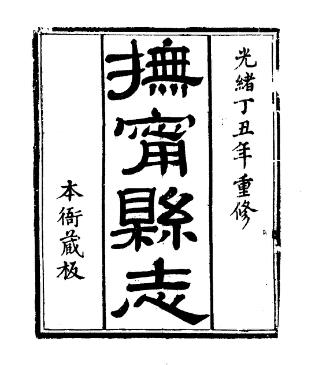 光緒丁丑年重修
撫甯縣志
本衙藏板